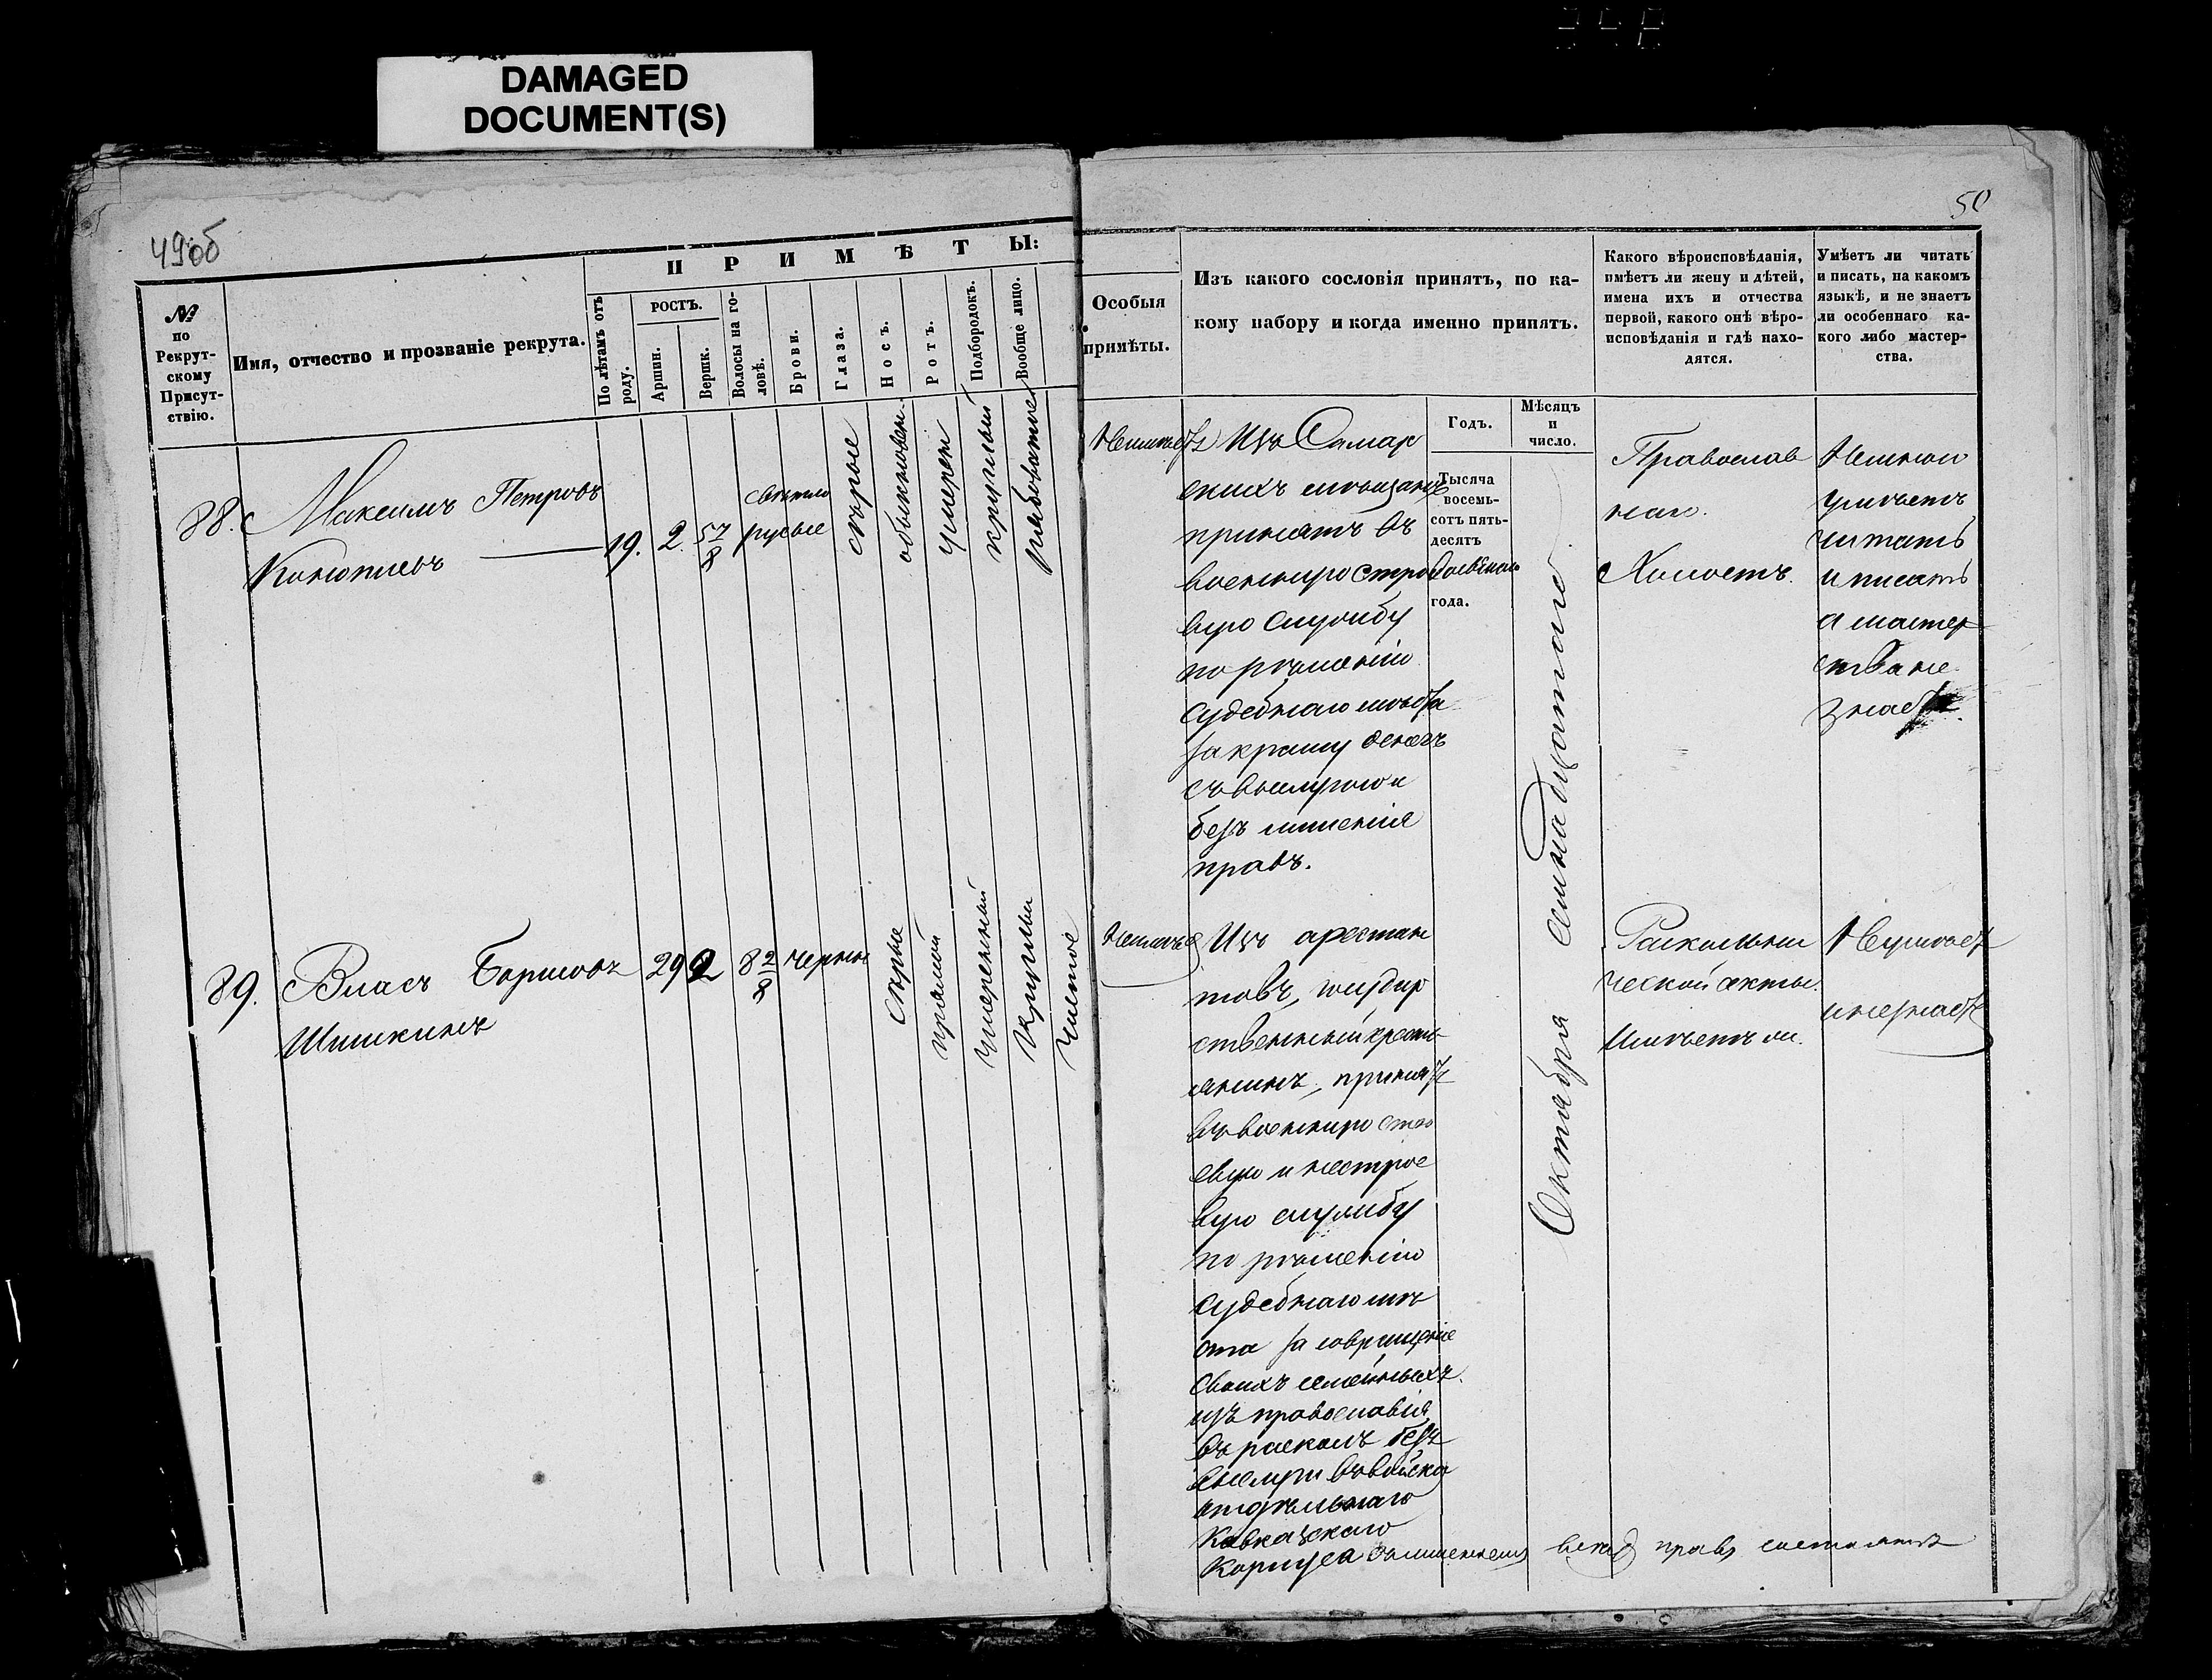 DAMAGED
DOCUMENT(S)
49об
50
ПРИМѢТЫ:
№
по
Рекрут-
скому
Присут-
ствію.
Имя, отчество и прозваніе рекрута.
По лѣтамъ отъ
роду.
РОСТЪ.
Аршин.
Вершк.
Волосы на го-
ловѣ.
Брови.
Глаза.
Носъ.
Ротъ.
Подбородокъ.
Вообще лицо.
Особыя
примѣты.
Изъ какого сословія принятъ, по ка-
кому набору и когда именно принятъ.
Годъ.
Мѣсяцъ
и
число.
Какого вѣроисповѣданія,
имѣетъ ли жену и дѣтей,
имена ихъ и отчества
первой, какого онѣ вѣро-
исповѣданія и гдѣ нахо-
дятся.
Умѣетъ ли читать
и писать, на какомъ
языкѣ, и не знаетъ
ли особеннаго ка-
кого либо мастер-
ства.
88.
Максимъ Петровъ
19.
2.
5 7/8
свѣтло
русые
сѣрые
обыкновен.
умерен
круглый
рябоватое
Изъ Самар
скихъ мѣщанъ
принятъ въ
военную строе
вую службу
по рѣшенію
судебнаго мѣста
за кражу денегъ
безъ лишенія
правъ.
Тысяча
восемь-
сотъ пять-
десятъ
года.
Октября семнадцатаго
Православ
ный.
Холостъ.
умѣетъ
читать
и писать
а мастер
ства не
знаетъ.
89.
Власъ Борисовъ
Шишкинъ
29
2
8 2/8
черные
Сѣрые
прямой
Умеренный
Круглый
Чистое
Изъ арестан
товъ, государ
ственный кресть
янинъ, принятъ
въ военную строе
вую службу
по рѣшенію
судебнаго мѣ
ста за совращеніе
своихъ семейныхъ
изъ православія
въ расколъ безъ
въ войска
отдѣльнаго
Кавказскаго
Корпуса съ лишеніемъ всѣхъ правъ состоянія
Раскольни
ческой секты.
Неумѣетъ
и незнаетъ